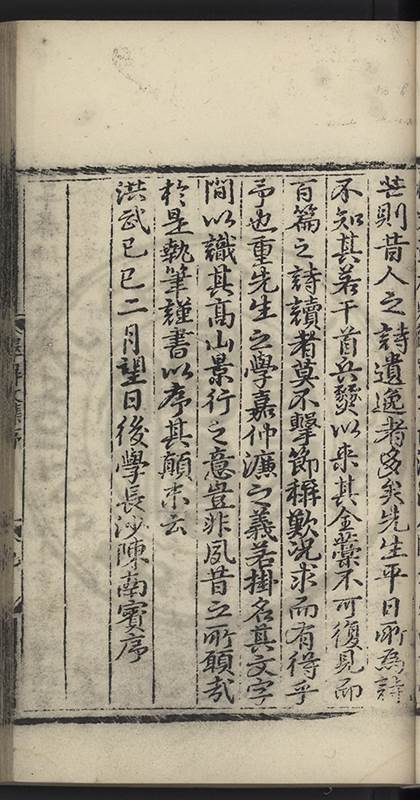 岂則昔人之詩遺逸者多矣先生平日所為詩
不知其若干首兵燹以来其全藁不可復見而
百篇之詩讀者莫不擊節稱歎况求而有得乎
予也重先生之學嘉仲濂之義若掛名其文字
間以識其高山景行之意豈非夙昔之所願哉
於是執筆謹書以序其顛末云
洪武己巳二月望日後學長沙陳南賓序